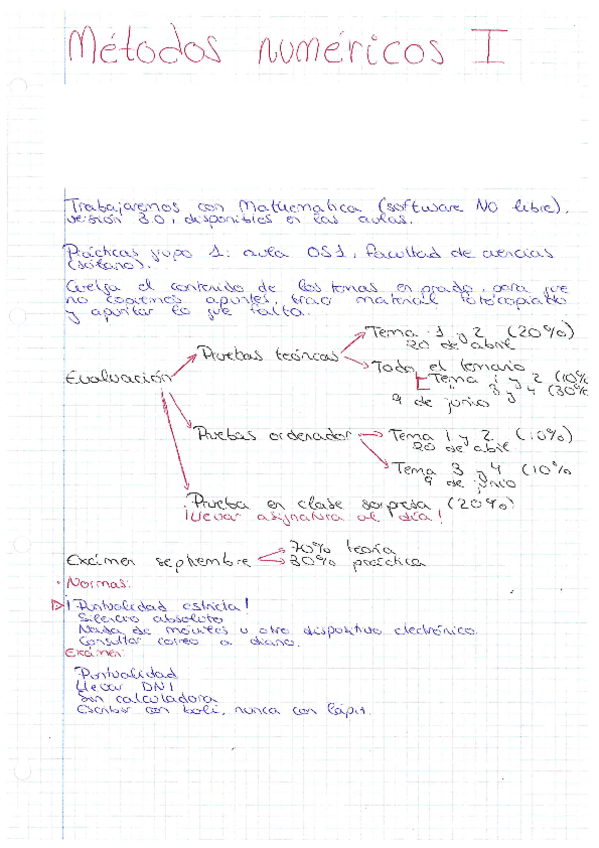 Métodos numéricos I
Trabajaremos con Mathematica (software NO libre),
versión 8.0, disponibles en las aulas.
Prácticas grupo 1: aula OS1, facultad de ciencias
(sótano).
Cuelga el contenido de los temas en prado, para que
no copiemos apuntes, traer material fotocopiado
y apuntar lo que falta.
Evaluación
Pruebas teóricas
Tema 1 y 2 (20%)
20 de abril
Todo el temario
Tema 1 y 2 (10%
" 3 y 4 (30%
9 de junio
Pruebas ordenador
Tema 1 y 2 (10%)
20 de abril
Tema 3 y 4 (10%
9 de junio
Prueba en clase sorpresa (20%)
¡Llevar asignatura al día!
Exámen septiembre
70% teoría
30% práctica
Normas:
¡Puntualidad estricta!
Silencio absoluto
Nada de móviles u otro dispositivo electrónico.
Consultar correo a diario.
Exámen:
Puntualidad
Llevar DNI
Sin calculadora
Escribir con boli, nunca con lápiz.